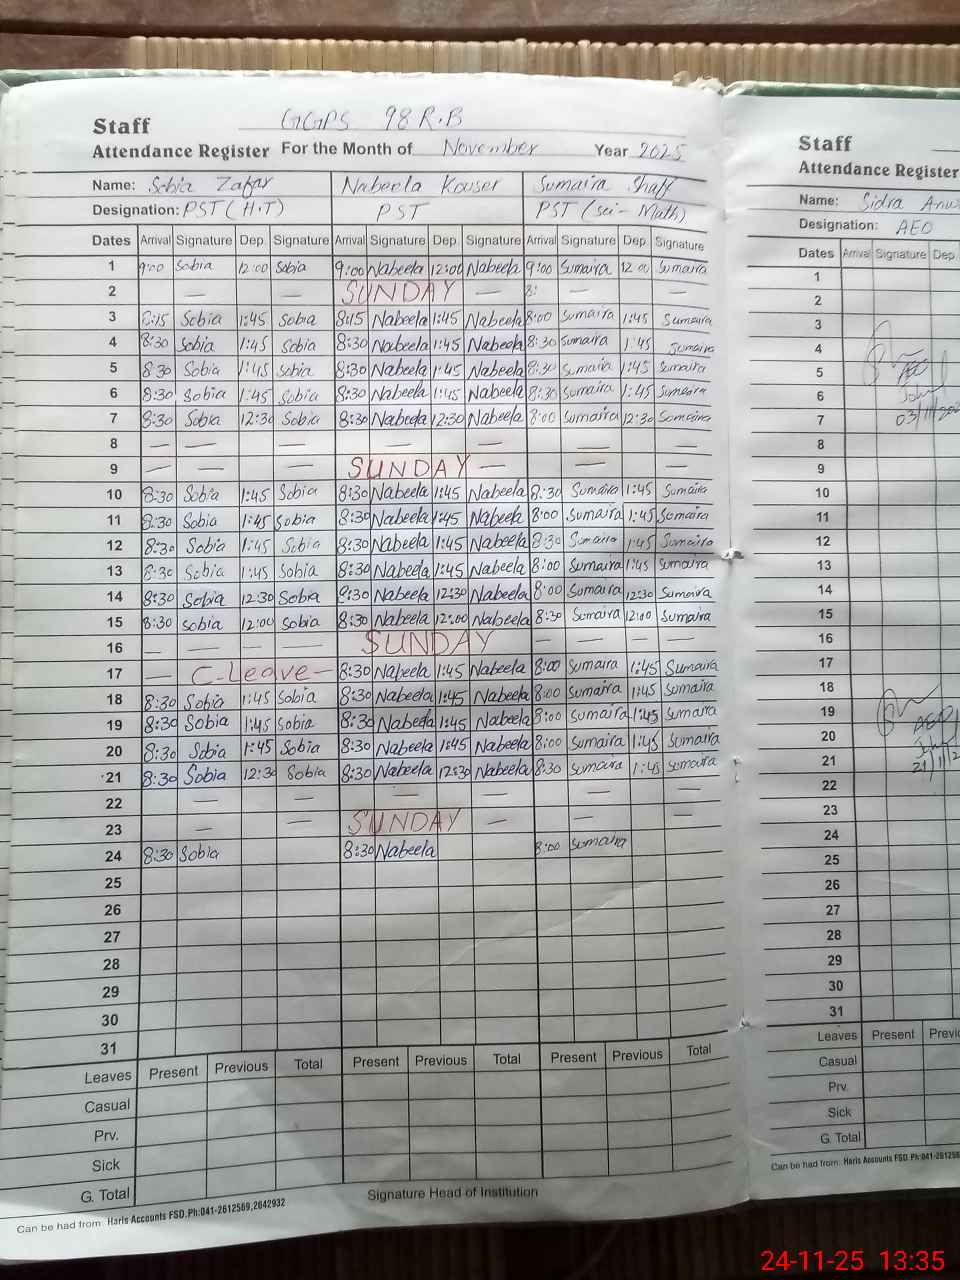 Staff GGPS 98 R.B
Attendance Register For the Month of November Year 2025
Name: Sobia Zafar Nabeela Kouser Sumaira Shafi
Designation: PST (H.T) PST PST (sci-Math)
Dates Arrival Signature Dep. Signature Arrival Signature Dep. Signature Arrival Signature Dep. Signature
1 9:00 Sobia 12:00 Sobia 9:00 Nabeela 12:00 Nabeela 9:00 Sumaira 12:00 Sumaira
2 — — SUNDAY — 8: — —
3 8:15 Sobia 1:45 Sobia 8:15 Nabeela 1:45 Nabeela 8:00 Sumaira 1:45 Sumaira
4 8:30 Sobia 1:45 Sobia 8:30 Nabeela 1:45 Nabeela 8:30 Sumaira 1:45 Sumaira
5 8:30 Sobia 1:45 Sobia 8:30 Nabeela 1:45 Nabeela 8:30 Sumaira 1:45 Sumaira
6 8:30 Sobia 1:45 Sobia 8:30 Nabeela 1:45 Nabeela 8:30 Sumaira 1:45 Sumaira
7 8:30 Sobia 12:30 Sobia 8:30 Nabeela 12:30 Nabeela 8:00 Sumaira 12:30 Sumaira
8 — — — — — — — —
9 — — — SUNDAY — — —
10 8:30 Sobia 1:45 Sobia 8:30 Nabeela 1:45 Nabeela 8:30 Sumaira 1:45 Sumaira
11 8:30 Sobia 1:45 Sobia 8:30 Nabeela 1:45 Nabeela 8:00 Sumaira 1:45 Sumaira
12 8:30 Sobia 1:45 Sobia 8:30 Nabeela 1:45 Nabeela 8:30 Sumaira 1:45 Sumaira
13 8:30 Sobia 1:45 Sobia 8:30 Nabeela 1:45 Nabeela 8:00 Sumaira 1:45 Sumaira
14 8:30 Sobia 12:30 Sobia 8:30 Nabeela 12:30 Nabeela 8:00 Sumaira 12:30 Sumaira
15 8:30 Sobia 12:00 Sobia 8:30 Nabeela 12:00 Nabeela 8:30 Sumaira 12:00 Sumaira
16 — — — — SUNDAY — — — —
17 — C-Leave — 8:30 Nabeela 1:45 Nabeela 8:00 Sumaira 1:45 Sumaira
18 8:30 Sobia 1:45 Sobia 8:30 Nabeela 1:45 Nabeela 8:00 Sumaira 1:45 Sumaira
19 8:30 Sobia 1:45 Sobia 8:30 Nabeela 1:45 Nabeela 8:00 Sumaira 1:45 Sumaira
20 8:30 Sobia 1:45 Sobia 8:30 Nabeela 1:45 Nabeela 8:00 Sumaira 1:45 Sumaira
21 8:30 Sobia 12:30 Sobia 8:30 Nabeela 12:30 Nabeela 8:30 Sumaira 1:45 Sumaira
22 — — — — — — —
23 — — SUNDAY — — —
24 8:30 Sobia 8:30 Nabeela 8:00 Sumaira
25
26
27
28
29
30
31
Leaves Present Previous Total Present Previous Total Present Previous Total
Casual
Prv.
Sick
G. Total
Signature Head of Institution
Can be had from Haris Accounts FSD.Ph:041-2612569,2642932
Staff
Attendance Register
Name: Sidra
Designation: AEO
Dates Arrival Signature Dep.
1
2
3
4
5
6
7 03/11/
8
9
10
11
12
13
14
15
16
17
18
19 AEO
20
21 21/11/2
22
23
24
25
26
27
28
29
30
31
Leaves Present
Casual
Prv.
Sick
G. Total
Can be had from Haris Accounts FSD. Ph:041-
24-11-25 13:35